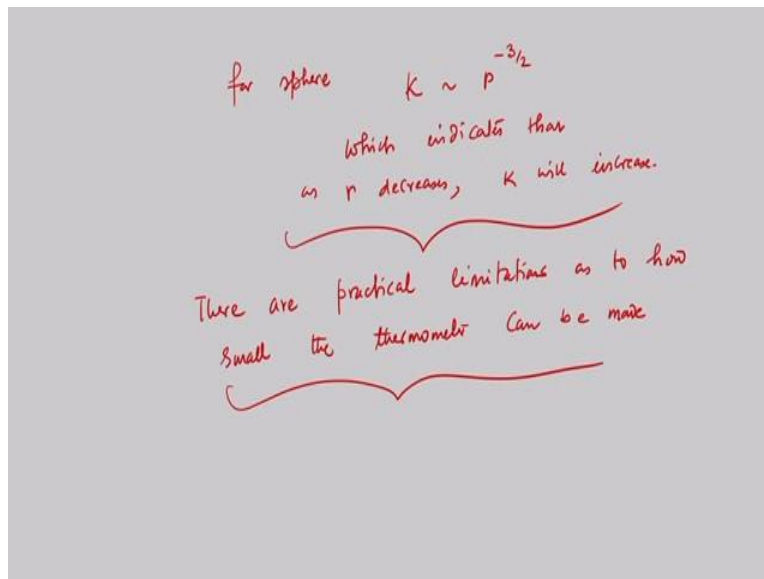 for sphere K ~ r^-3/2
which indicates that
as r decreases, K will increase.
There are practical limitations as to how
small the thermometer can be made